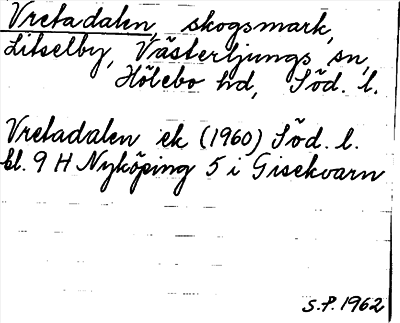 Vretadalen, skogsmark,
Litselby, Västerljungs sn,
Hölebo hd, Söd. l.
Vretadalen ek (1960) Söd. l.
bl. 9 H Nyköping 5 i Gisekvarn
S.P. 1962